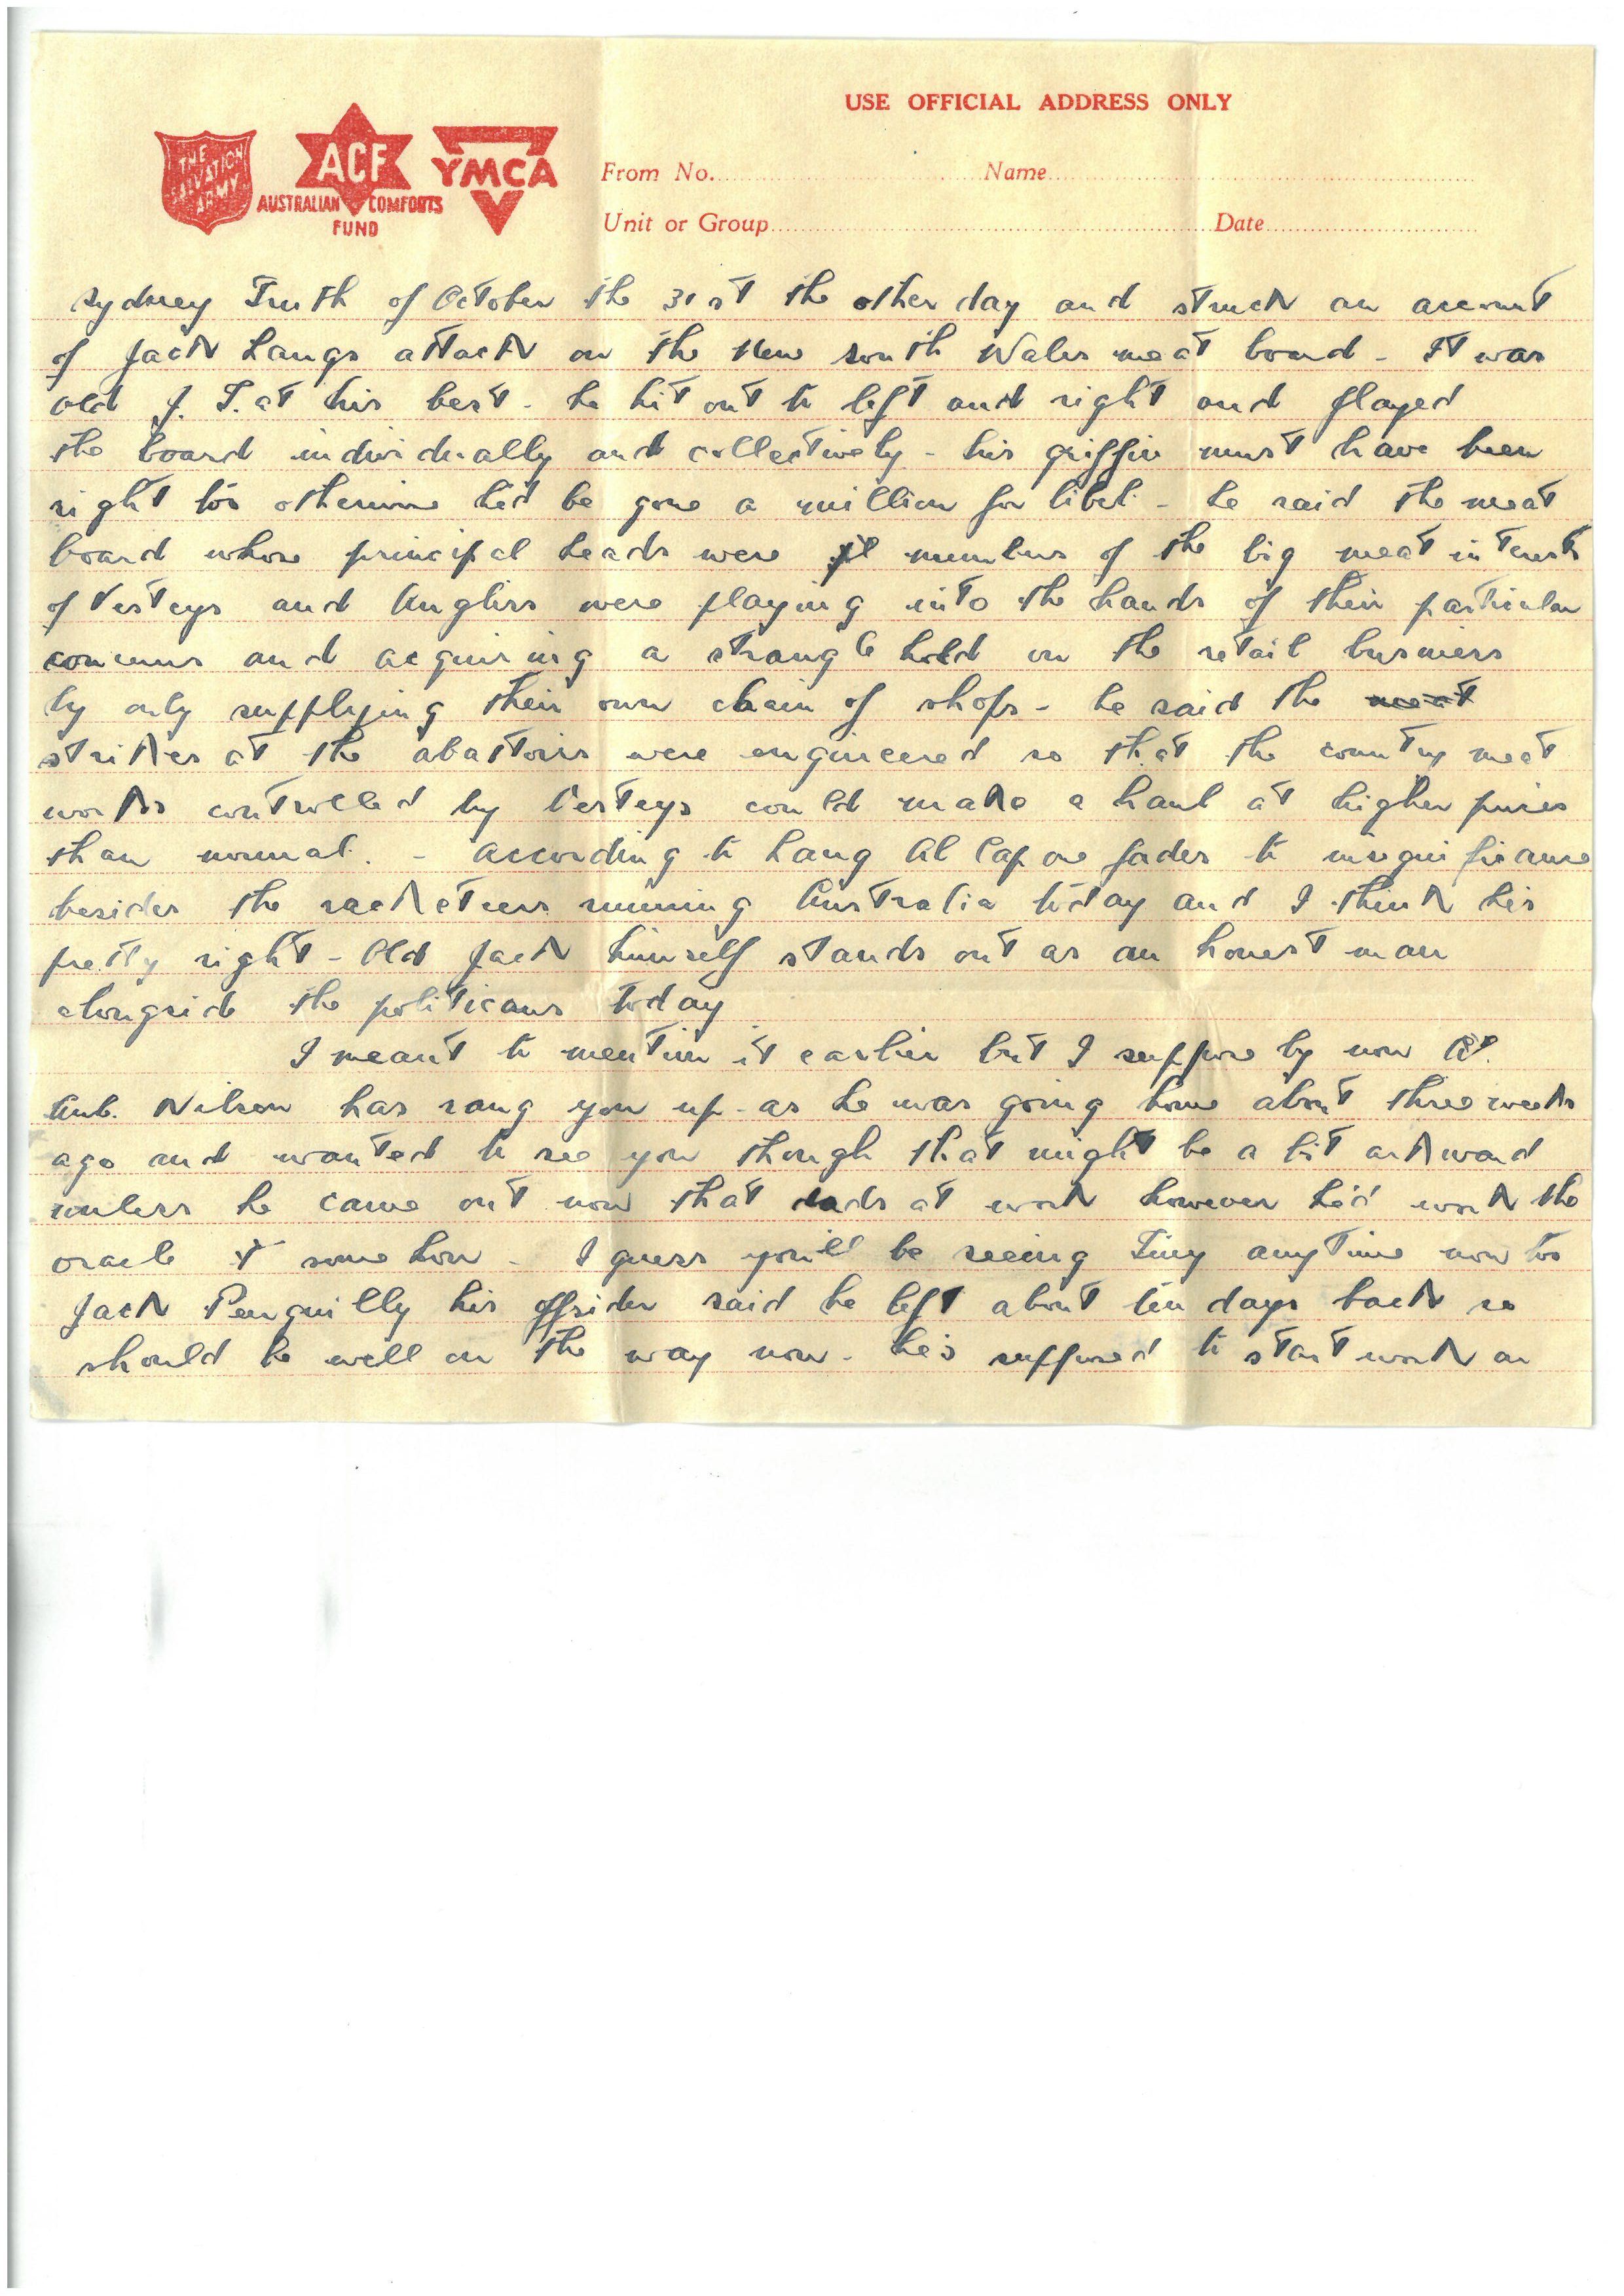 USE OFFICIAL ADDRESS ONLY
THE SALVATION ARMY
ACF
AUSTRALIAN COMFORTS FUND
YMCA
From No. Name
Unit or Group Date
Sydney Truth of October the 31st the other day and struck an account
of Jack Langs attack on the New South Wales meat board - It was
old J. T. at his best - he hit out to left and right and flayed
the board individually and collectively - his griffin must have been
right too otherwise he'd be gone a million for libel - he said the meat
board whose principal heads were members of the big meat interests
of Vesteys and Angliss were playing into the hands of their particular
concerns and acquiring a strangle hold on the retail business
by only supplying their own chain of shops - he said the meat
strikes at the abattoirs were engineered so that the country meat
works controlled by Vesteys could make a haul at higher prices
than normal. - According to Lang Al Capone fades to insignificance
besides the racketeers running Australia today and I think his
pretty right - Old Jack himself stands out as an honest man
alongside the politicans today
I meant to mention it earlier but I suppose by now
Aub. Nilson has rang you up - as he was going home about three weeks
ago and wanted to see you though that might be a bit arkward
unless he came out now that dads at work however he'd work the
oracle somehow - I guess you'll be seeing Tiny anytime now too
Jack Penquilly his offsider said he left about ten days back so
should be well on the way now - he's supposed to start work on